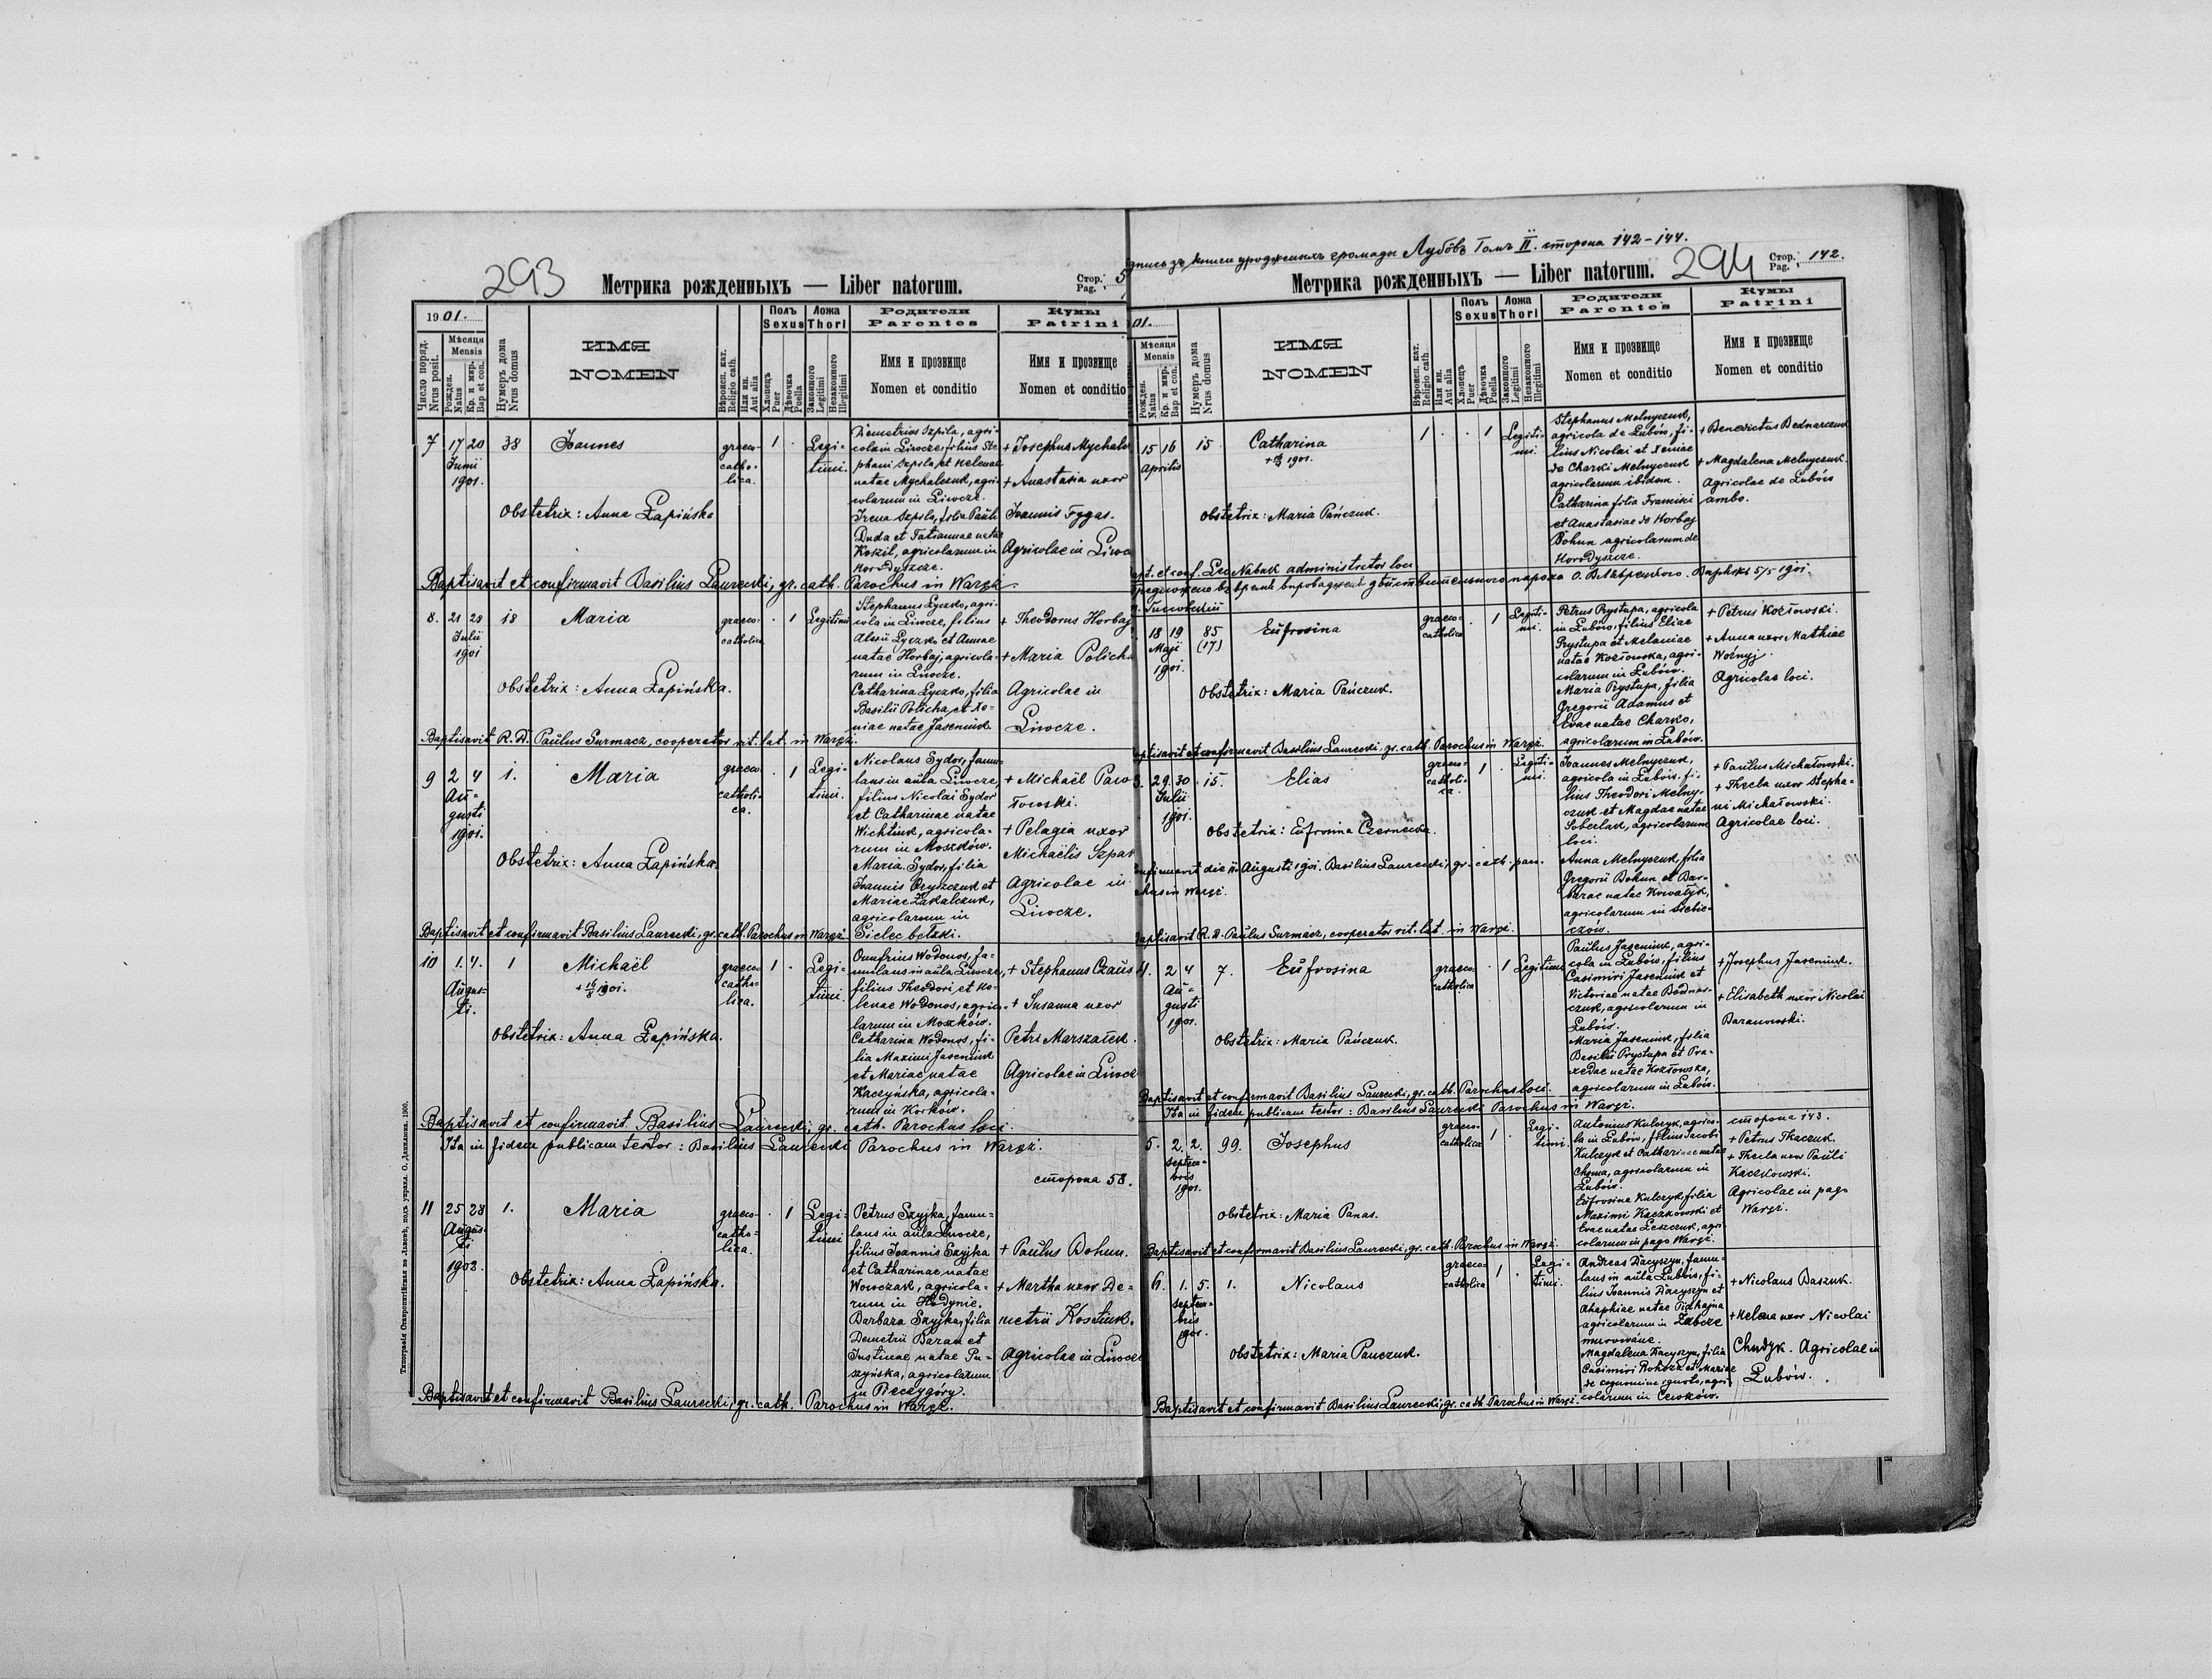 293
Метрика рожденныхъ — Liber natorum.
Стор. Pag. 5
1901.
Число поряд. Nrus posit.
Мѣсяця Mensis
Рожден. Natus
Кр. и мир. Bap et con.
Нумеръ дома Nrus domus
ИМЯ NOMEN
Вѣроисп. кат. Religio cath.
Или ин. Aut alia
Полъ Sexus
Хлопець Puer
Дѣвочка Puella
Ложа Thori
Законного Legitimi
Незаконного Illegitimi
Родители Parentes
Имя и прозвище Nomen et conditio
Кумы Patrini
Имя и прозвище Nomen et conditio
7 17 20 Junii 1901. 38 Ioannes
graeco-catholica. 1 . Legitimi.
Demetrius Szpila, agri-
cola in Liwcze, filius Ste-
phani Szpila, et Helenae
natae Mychalczuk, agri-
colarum in Liwcze.
Irena Szpila, filia Pauli
Duda et Tatiannae natae
Kozil, agricolarum in
Horodyszcze.
+ Josephus Mychal
+ Anastasia uxor
Ioannis Tygas.
Agricolae in Liwc
Obstetrix: Anna Łapińska
Baptisavit et confirmavit Basilius Laurecki, gr. cath. Parochus in Waręż
8. 21 28 Julii 1901 18 Maria
graeco-catholica . 1 Legitimi
Stephanus Łyczko, agri-
cola in Liwcze, filius
Alexii Łyczko et Annae
natae Horbaj, agricola-
rum in Liwcze.
Catharina Łyczko, filia
Basilii Policha et Xe-
niae natae Jaseniuk
+ Theodorus Horbaj
+ Maria Policha
Agricolae in
Liwcze.
Obstetrix: Anna Łapińska.
Baptisavit R. D. Paulus Surmacz, cooperator rit. lat. in Waręż.
9 2 4 Augusti 1901. 1. Maria
graeco catholica. . 1 Legitimi.
Nicolaus Sydor, famu-
lans in aula Liwcze,
filius Nicolai Sydor
et Catharinae natae
Wichtiuk, agricola-
rum in Moszków.
Maria Sydor, filia
Ioannis Oryszczuk et
Mariae Zakalczuk,
agricolarum in
Sielec bełzki.
+ Michaël Paw
łowski.
+ Pelagia uxor
Michaëlis Szpak
Agricolae in
Liwcze.
Obstetrix: Anna Łapińska.
Baptisavit et confirmavit Basilius Laurecki, gr. cath. Parochus in Waręż.
10 1. 4. Augusti. 1 Michaël
+ 16/8 1901.
graeco-catholica. 1 . Legitimi.
Onufrius Wodonos, fa-
mulans in aula Liwcze,
filius Theodori et He-
lenae Wodonos, agrico-
larum in Moszków.
Catharina Wodonos, fi-
lia Maximi Jaseniuk
et Mariae natae
Kaczyńska, agricola-
rum in Korków.
+ Stephanus Czaus
+ Susanna uxor
Petri Marszałek.
Agricolae in Liwcze
Obstetrix: Anna Łapińska.
Baptisavit et confirmavit Basilius Laurecki, gr. cath. Parochus loci.
Ita in fidem publicam testor: Basilius Laurecki Parochus in Waręż.
сторона 58.
11 25 28 Augusti 1902. 1. Maria
graeco-catholica. . 1 Legitimi
Petrus Szyjka, famu-
lans in aula Liwcze,
filius Ioannis Szyjka
et Catharinae natae
Wowczak, agricola-
rum in Hodynie.
Barbara Szyjka, filia
Demetrii Baran et
Justinae natae Pu-
szyńska, agricolarum
in Pieczygóry.
+ Paulus Bohun.
+ Martha uxor De-
metrii Kostiuk.
Agricolae in Liwcze
Obstetrix: Anna Łapińska.
Baptisavit et confirmavit Basilius Laurecki, gr. cath. Parochus in Waręż.
Типографія Ставропигійская во Львовѣ, подъ управл. О. Данилюка. 1900.
дпись зъ книги урожденныхъ громады Лубôвъ Томъ II. сторона 142-144.
294
Метрика рожденныхъ — Liber natorum.
Стор. Pag. 142.
01.
Мѣсяця Mensis
Рожден. Natus
Кр. и мир. Bap et con.
Нумеръ дома Nrus domus
ИМЯ NOMEN
Вѣроисп. кат. Religio cath.
Или ин. Aut alia
Полъ Sexus
Хлопець Puer
Дѣвочка Puella
Ложа Thori
Законного Legitimi
Незаконного Illegitimi
Родители Parentes
Имя и прозвище Nomen et conditio
Кумы Patrini
Имя и прозвище Nomen et conditio
15 16 Aprilis 15 Catharina
1901.
1 . . 1 Legitimi.
Stephanus Melnyczuk,
agricola de Łubów, fi-
lius Nicolai et Xeniae
de Charki Melnyczuk
agricolarum ibidem.
Catharina filia Francisci
et Anastasiae de Horbaj
Bohun agricolarum de
Horodyszcze.
+ Benedictus Bednarczuk
+ Magdalena Melnyczuk.
Agricolae de Łubów
ambo.
Obstetrix: Maria Pańczuk.
apt. et conf. Leo Nabak administrator loci
18 19 Maji 1901. 85 (17) Eufrosina
graeco-catholica . 1 Legitimi.
Petrus Prystupa, agricola
in Łubów, filius Eliae
Prystupa et Melaniae
natae Kozłowska, agri-
colarum in Łubów.
Maria Prystupa, filia
Gregorii Adamus et
Evae natae Charko,
agricolarum in Łubów.
+ Petrus Kozłowski.
+ Anna uxor Mathiae
Woźnyj.
Agricolae loci.
Obstetrix: Maria Pańczuk.
aptisavit et confirmavit Basilius Laurecki, gr. cath. Parochus in Waręż.
3. 29. 30 Julii 1901. 15. Elias
graeco-catholica. 1 . Legitimi.
Ioannes Melnyczuk,
agricola in Łubów, fi-
lius Theodori Melny-
czuk et Magdae natae
Soberlak, agricolarum
loci.
Anna Melnyczuk, filia
Gregorii Bohun et Bar-
barae natae Kowalyk,
agricolarum in Siebie-
czów.
+ Paulus Michałowski.
+ Thecla uxor Stepha-
ni Michałowski.
Agricolae loci.
Obstetrix: Eufrosina Czernecka.
onfirmavit die Augusti 1901. Basilius Laurecki, gr. cath. paro-
chus in Waręż.
Baptisavit R. D. Paulus Surmacz, cooperator rit. lat. in Waręż.
4. 2 4 Augusti 1901. 7. Eufrosina
graeco-catholica . 1 Legitimi
Paulus Jaseniuk, agri-
cola in Łubów, filius
Casimiri Jaseniuk et
Victoriae natae Bednar-
czuk, agricolarum in
Łubów.
Maria Jaseniuk, filia
Basilii Prystupa et Pra-
xedae natae Kozłowska,
agricolarum in Łubów.
+ Josephus Jaseniuk.
+ Elisabeth uxor Nicolai
Baranowski.
Obstetrix: Maria Pańczuk.
Baptisavit et confirmavit Basilius Laurecki, gr. cath. Parochus loci.
Ita in fidem publicam testor: Basilius Laurecki Parochus in Waręż.
сторона 143.
5. 2. 2. Septembris 1901. 99. Josephus
graeco-catholica 1 . Legitimi.
Antonius Kulczyk, agrico-
la in Łubów, filius Jacobi
Kulczyk et Catharinae natae
Choma, agricolarum in
Łubów.
Eufrosina Kulczyk, filia
Maximi Kaczkowski et
Evae natae Leszczuk, agri-
colarum in pago Waręż.
+ Petrus Tkaczuk.
+ Thecla uxor Pauli
Kaczkowski.
Agricolae in pago
Waręż.
Obstetrix: Maria Panas.
Baptisavit et confirmavit Basilius Laurecki, gr. cath. Parochus in Waręż.
6. 1. 5. Septembris 1901. 1. Nicolaus
graeco-catholica 1 . Legitimi.
Andreas Dacyszyn, famu-
lans in aula Łubów, fi-
lius Ioannis Dacyszyn et
Ahaphiae natae Pidhajna
agricolarum in Żabcze
murowane.
Magdalena Dacyszyn, filia
Casimiri Rokosz et Mariae
de cognomine ignoto, agri-
colarum in Cewków.
+ Nicolaus Baszuk.
+ Helena uxor Nicolai
Chudyk. Agricolae in
Łubów.
Obstetrix: Maria Panczuk.
Baptisavit et confirmavit Basilius Laurecki, gr. cath. Parochus in Waręż.